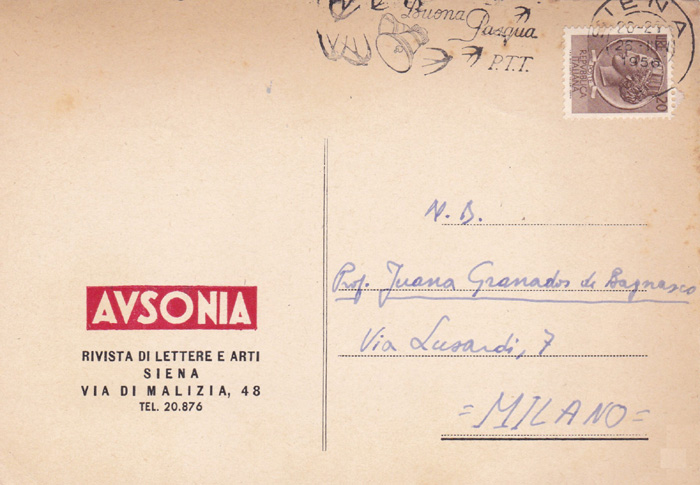 Buona
Pasqua
P.T.T.
SIENA
20-21
1956
REPUBBLICA
ITALIANA
20
AVSONIA
RIVISTA DI LETTERE E ARTI
SIENA
VIA DI MALIZIA, 48
TEL. 20.876
N. D.
Prof. Juana Granados de Bagnasco
Via Lusardi, 7
=MILANO=